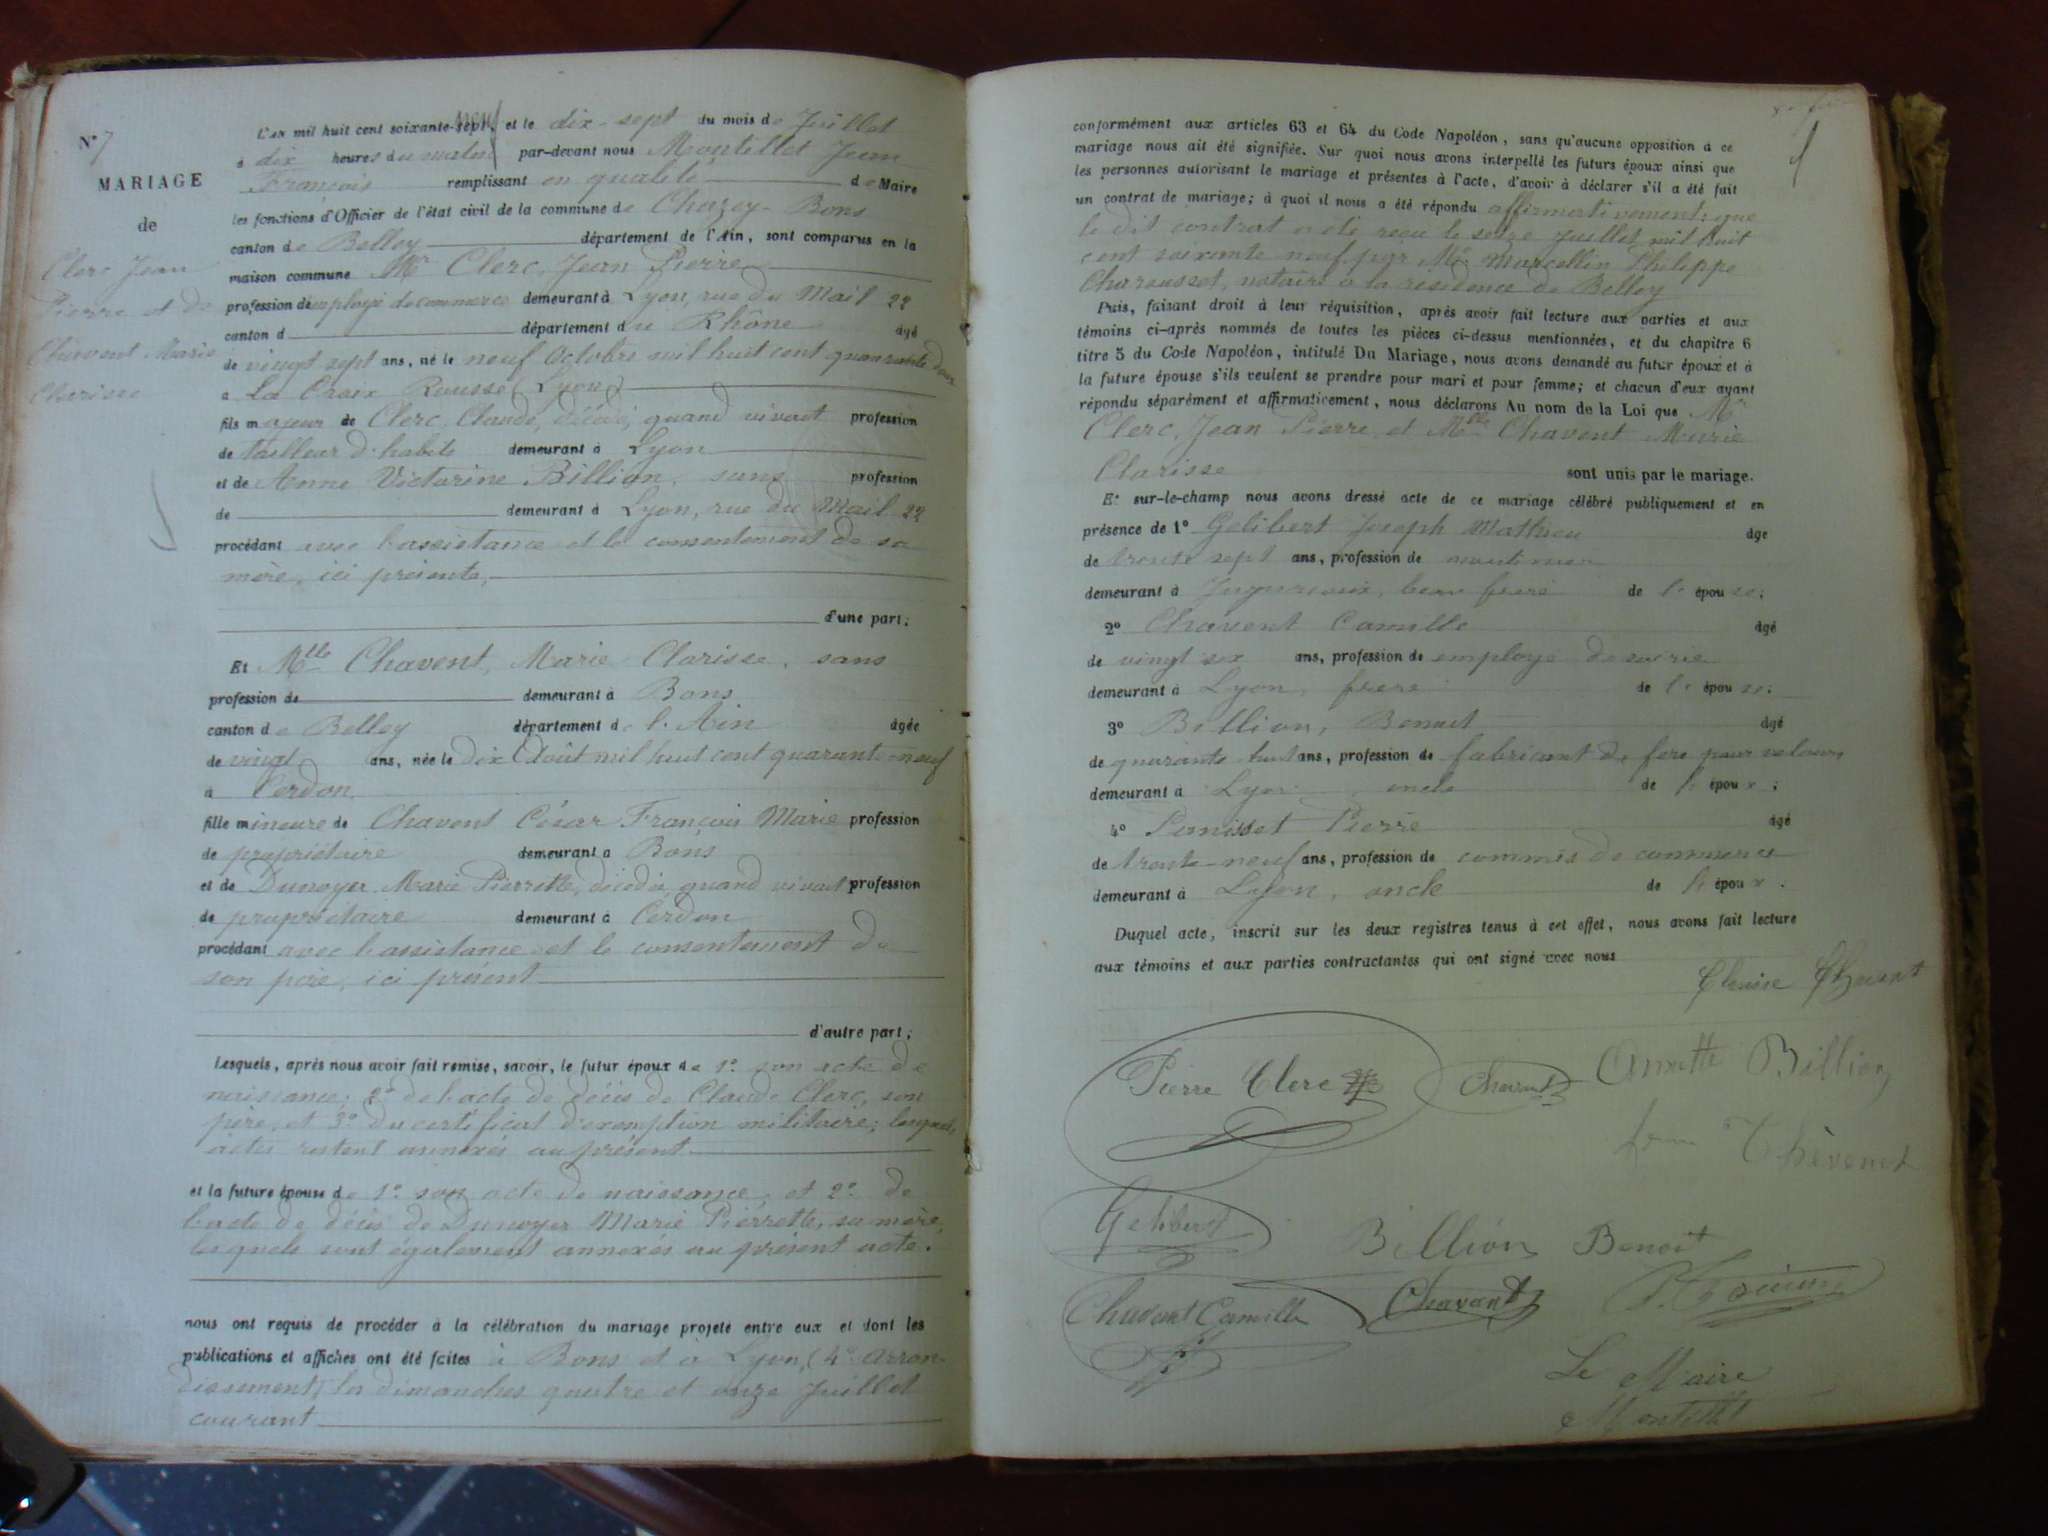 N° 7
MARIAGE
de
Clerc Jean
Pierre et de
Chavent Marie
Clarisse
L'an mil huit cent soixante-sept neuf, et le dix-sept du mois de Juillet
à dix heures du matin par-devant nous Montillet Jean
François remplissant en qualité de Maire
les fonctions d'Officier de l'état civil de la commune de Chazey-Bons
canton de Belley département de l'Ain, sont comparus en la
maison commune Mr Clerc, Jean Pierre
profession de employé de commerce demeurant à Lyon, rue du Mail 22
canton d département du Rhône âgé
de vingt sept ans, né le neuf Octobre mil huit cent quarante deux
à La Croix Rousse (Lyon)
fils majeur de Clerc, Claude, décédé, quand vivait profession
de tailleur d'habits demeurant à Lyon
et de Anne Victorine Billion, sans profession
de demeurant à Lyon, rue du Mail 22
procédant avec l'assistance et le consentement de sa
mère, ici présente,
d'une part;
Et Mlle Chavent, Marie Clarisse, sans
profession de demeurant à Bons
canton de Belley département de l'Ain âgée
de vingt ans, née le dix Août mil huit cent quarante-neuf
à Cerdon
fille mineure de Chavent César François Marie profession
de propriétaire demeurant à Bons
et de Dunoyer Marie Pierrette, décédée, quand vivait profession
de propriétaire demeurant à Cerdon
procédant avec l'assistance et le consentement de
son père, ici présent
d'autre part;
Lesquels, après nous avoir fait remise, savoir, le futur époux de 1° son acte de
naissance; 2° de l'acte de décès de Claude Clerc, son
père, et 3° du certificat d'exemption militaire; lesquels
actes restent annexés au présent.
et la future épouse de 1° son acte de naissance, et 2° de
l'acte de décès de Dunoyer Marie Pierrette, sa mère,
lesquels sont également annexés au présent acte.
nous ont requis de procéder à la célébration du mariage projeté entre eux et dont les
publications et affiches ont été faites à Bons et à Lyon, (4e arron-
dissement) les dimanches quatre et onze Juillet
courant
conformément aux articles 63 et 64 du Code Napoléon, sans qu'aucune opposition à ce
mariage nous ait été signifiée. Sur quoi nous avons interpellé les futurs époux ainsi que
les personnes autorisant le mariage et présentes à l'acte, d'avoir à déclarer s'il a été fait
un contrat de mariage; à quoi il nous a été répondu affirmativement; que
le dit contrat a été reçu le seize Juillet mil huit
cent soixante neuf par Me Marcellin Philippe
Charousset, notaire à la résidence de Belley
Puis, faisant droit à leur réquisition, après avoir fait lecture aux parties et aux
témoins ci-après nommés de toutes les pièces ci-dessus mentionnées, et du chapitre 6
titre 5 du Code Napoléon, intitulé Du Mariage, nous avons demandé au futur époux et à
la future épouse s'ils veulent se prendre pour mari et pour femme; et chacun d'eux ayant
répondu séparément et affirmativement, nous déclarons Au nom de la Loi que Mr
Clerc, Jean Pierre, et Mlle Chavent Marie
Clarisse sont unis par le mariage.
Et sur-le-champ nous avons dressé acte de ce mariage célébré publiquement et en
présence de 1° Gelibert Joseph Mathieu âgé
de trente sept ans, profession de
demeurant à Jujurieux, beau frère de l'épouse;
2° Chavent Camille âgé
de vingt six ans, profession de employé de soirie
demeurant à Lyon, frère de l'épouse;
3° Billion, Benoit âgé
de quarante huit ans, profession de fabricant de fers pour velours
demeurant à Lyon oncle de l'époux;
4° Pierre âgé
de trente-neuf ans, profession de commis de commerce
demeurant à Lyon, oncle de l'époux.
Duquel acte, inscrit sur les deux registres tenus à cet effet, nous avons fait lecture
aux témoins et aux parties contractantes qui ont signé avec nous
Clarisse Chavent
Pierre Clerc Chavent Annette Billion
Thévenet
Gelibert Billion Benoit
Chavent Camille Chavent
Le Maire
Montillet